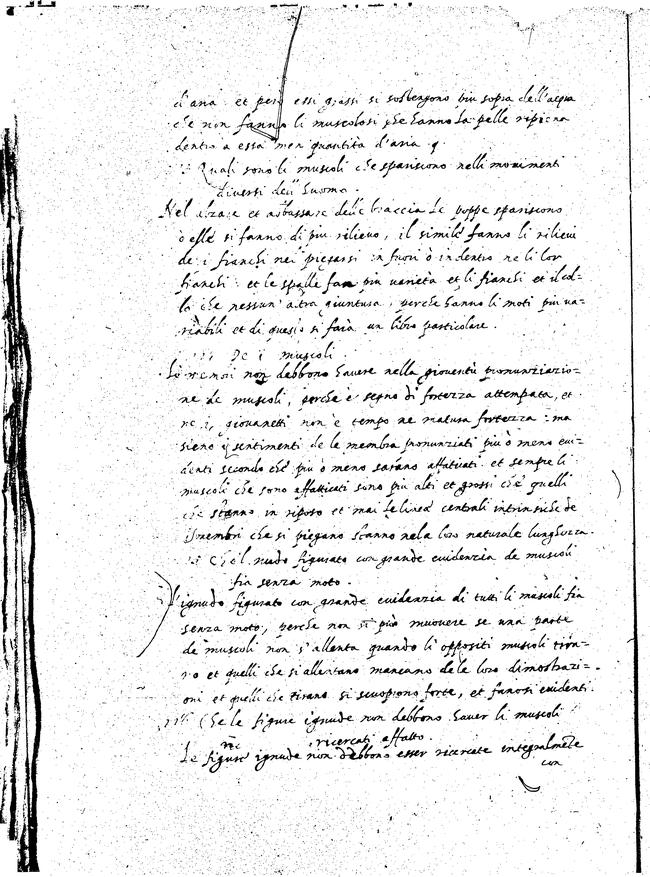 d'aria. et però essi grassi si sostengono piu sopra dell'acqua
che non fanno li muscolosi che hanno la pelle ripiena
dentro a essa men quantità d'aria
Quali sono li muscoli che spariscono nelli movimenti
diversi dell'huomo.
Nel alzare et abbassare delle braccia le poppe spariscono
ò elle si fanno di piu rilievo, il simile fanno li rilievi
de i fianchi nei piegarsi in fuori ò in dentro ne li lor
fianchi. et le spalle fan più varietà et li fianchi et il col-
lo che nessun'altra giuntura, perche hanno li moti più va-
riabili et di questo si farà un libro particolare.
De i muscoli.
Le membri non debbono havere nella gioventù pronunziazio-
ne de muscoli, perche è segno di fortezza attempata, et
ne i giovanetti non è tempo ne matura fortezza: ma
sieno i sentimenti de le membra pronunziati più ò meno evi-
denti secondo che più ò meno sarano affaticati. et sempre li
muscoli che sono affatticati sono più alti et grossi che quelli
che stanno in riposo et mai le linee centrali intrinsiche de
i membri che si piegano stanno nela loro naturale lunghezza.
Che'l nudo figurato con grande evidenzia de muscoli
fia senza moto.
l'ignudo figurato con grande evidenzia di tutti li muscoli fia
senza moto, perche non si può muovere se una parte
de muscoli non s'allenta quando li oppositi muscoli tira-
no et quelli che si allentano mancano dele loro dimostrazi-
oni et quelli che tirano si scuopiono forte, et fanosi evidenti.
Che le figure ignude non debbono haver li muscoli
ricercati affatto.
Le figure ignude non debbono esser ricercate integralmente
con